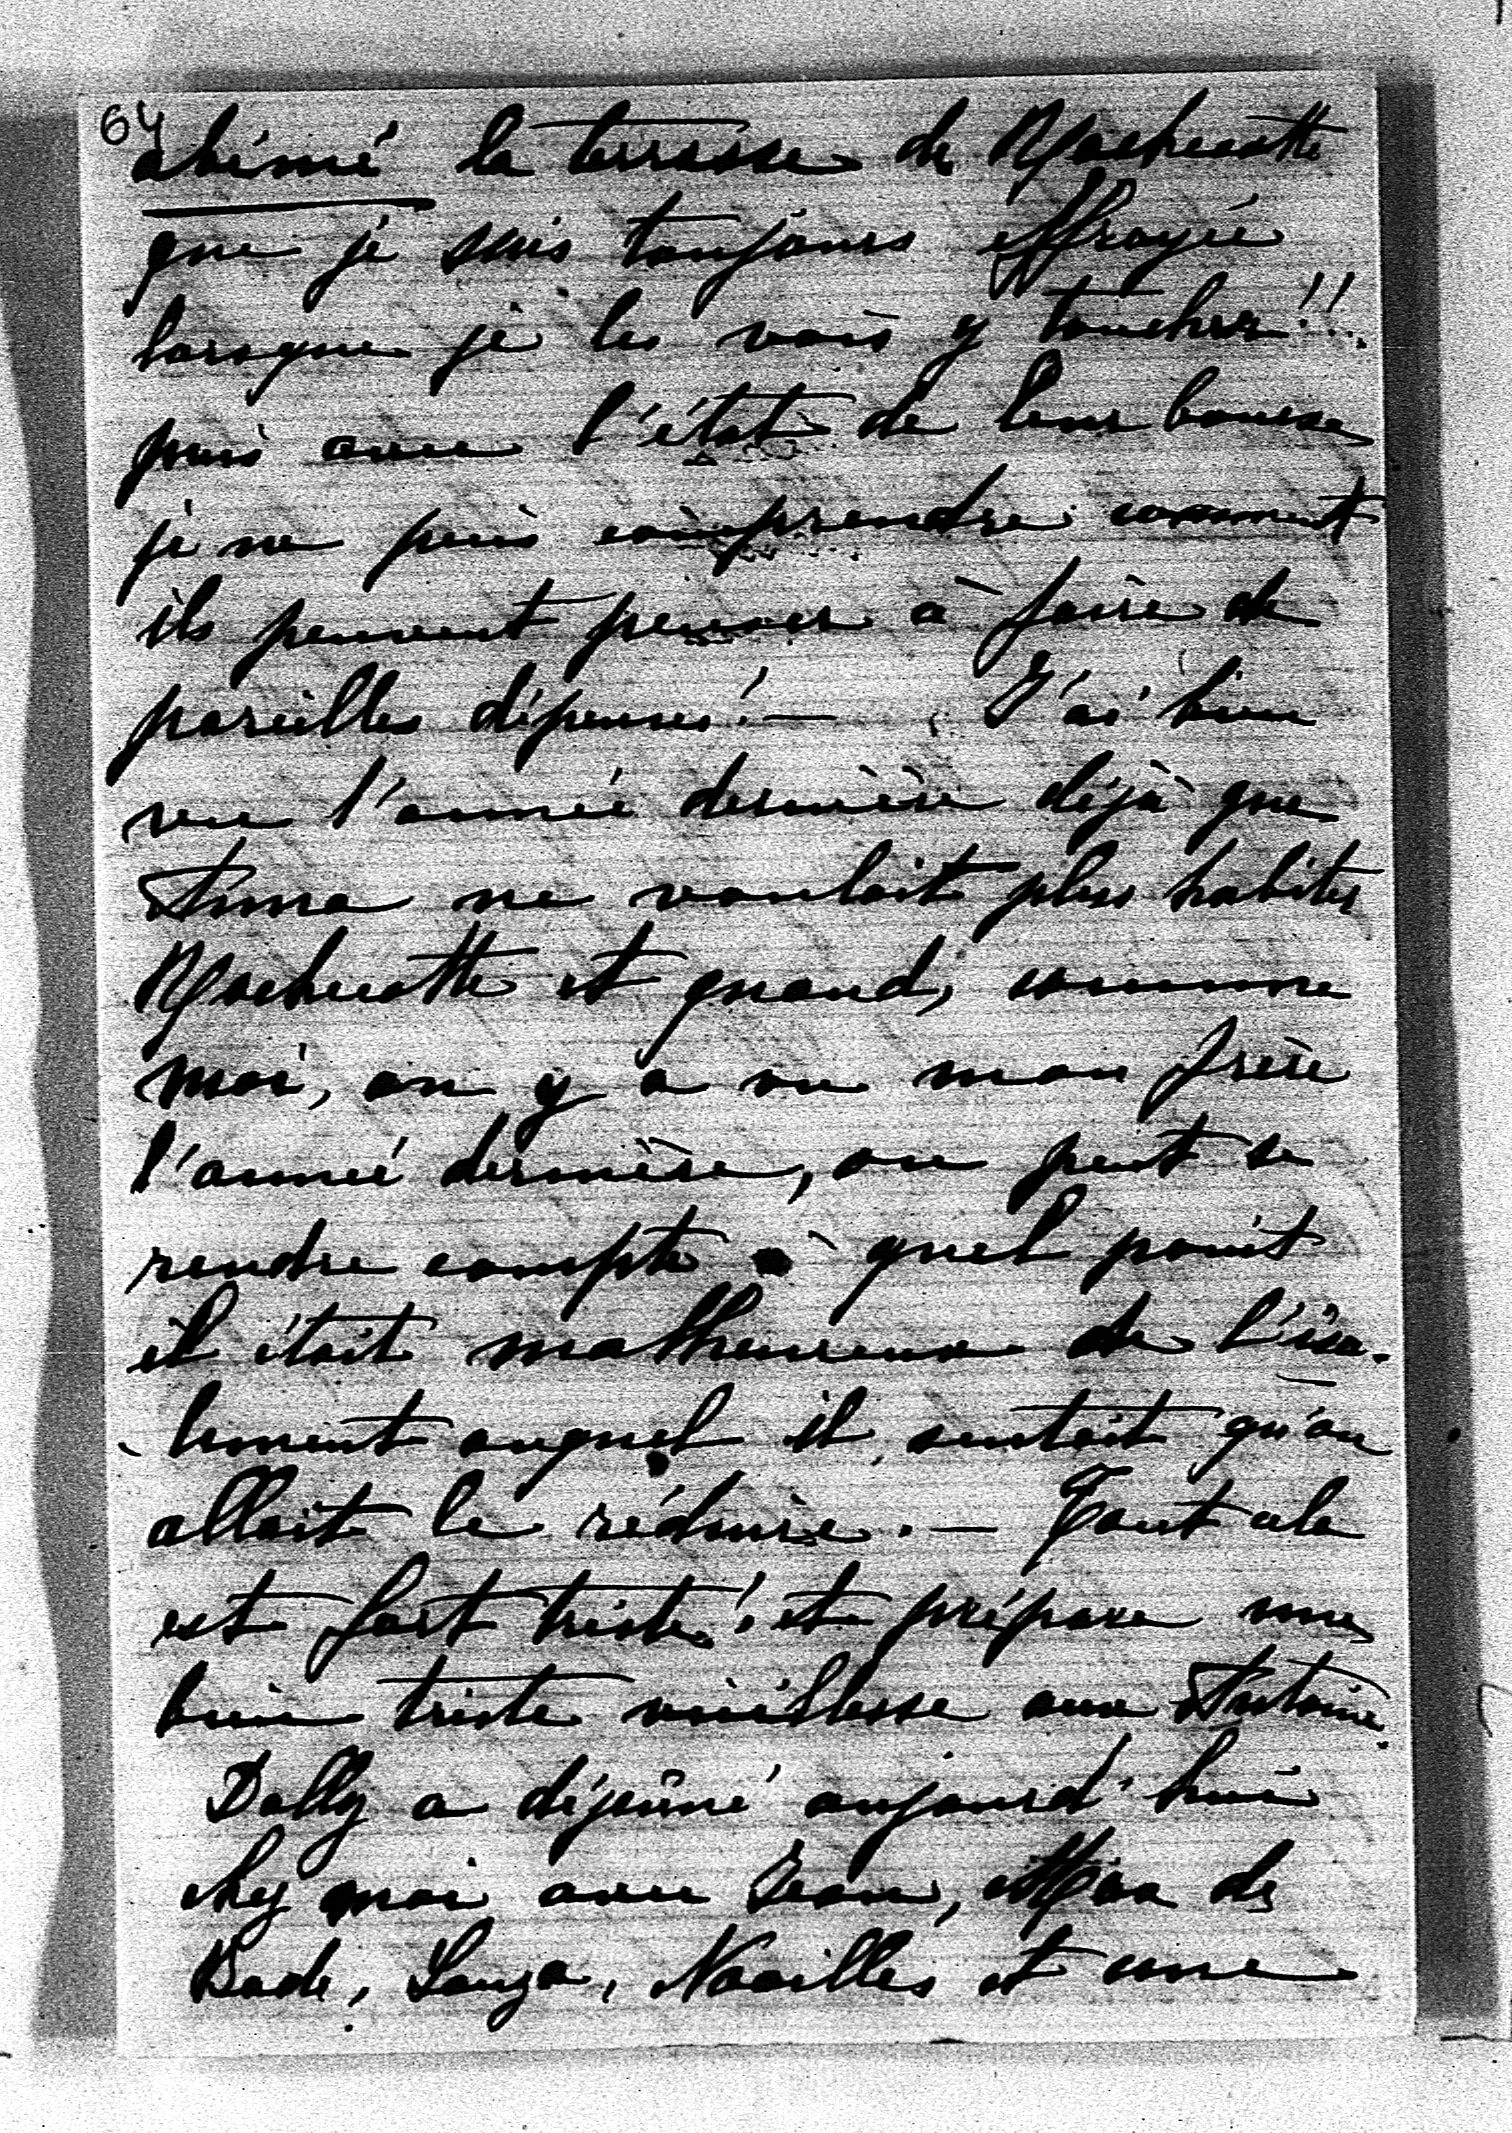 64
abimé la terrasse de Rochecotte
que je suis toujours effrayée
lorsque je les vois y toucher!!.
puis avec l'état de leur bourse
je ne puis comprendre comment
ils peuvent penser à faire de
pareilles dépenses! — J'ai bien
vu l'année dernière déjà que
Anna ne voulait plus habiter
Rochecotte et quand, comme
moi, on y a vu mon frère
l'année dernière, on peut se
rendre compte à quel point
il était malheureux de l'iso-
lement auquel il sentait qu'on
allait le réduire. — Tout cela
est fort triste! et prépare une
bien triste vieillesse aux Antoine.
Dolly a déjeûné aujourd'hui
chez moi avec Jean, Max de
Bade, Souza, Noailles et une